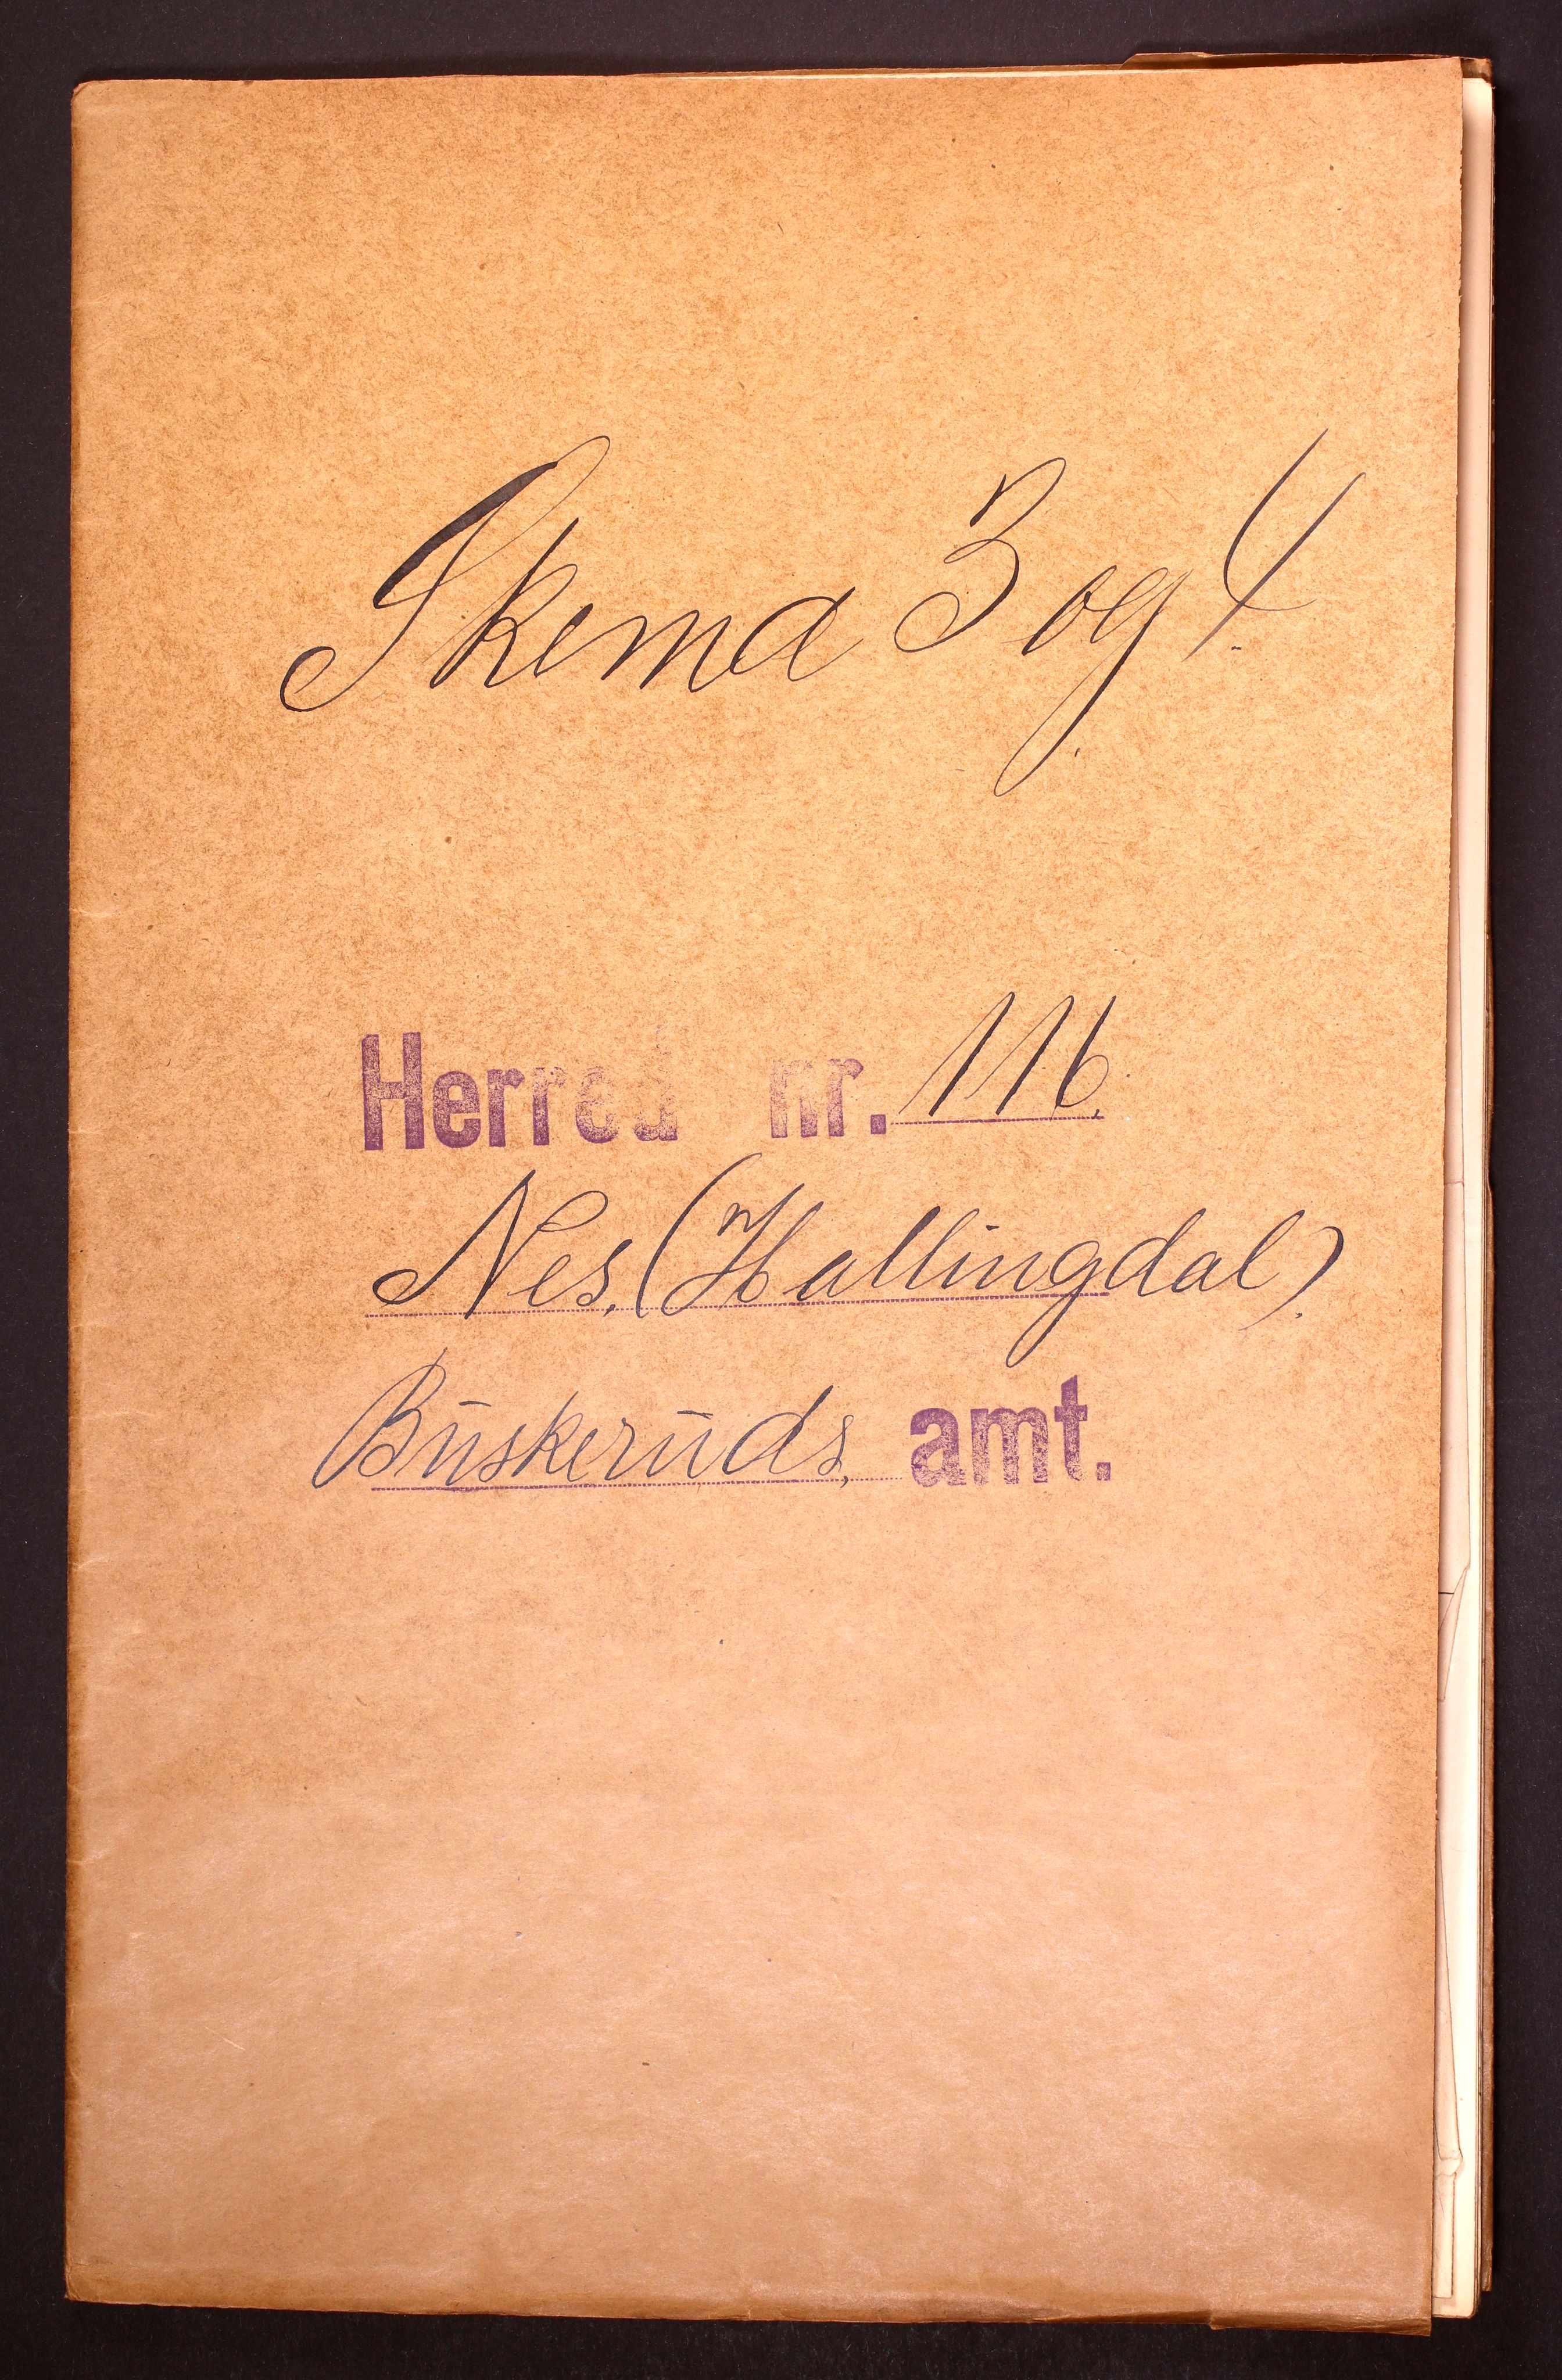 Skema 3 og 4.
Herred nr. 116.
Nes. (Hallingdal).
Buskeruds. amt.